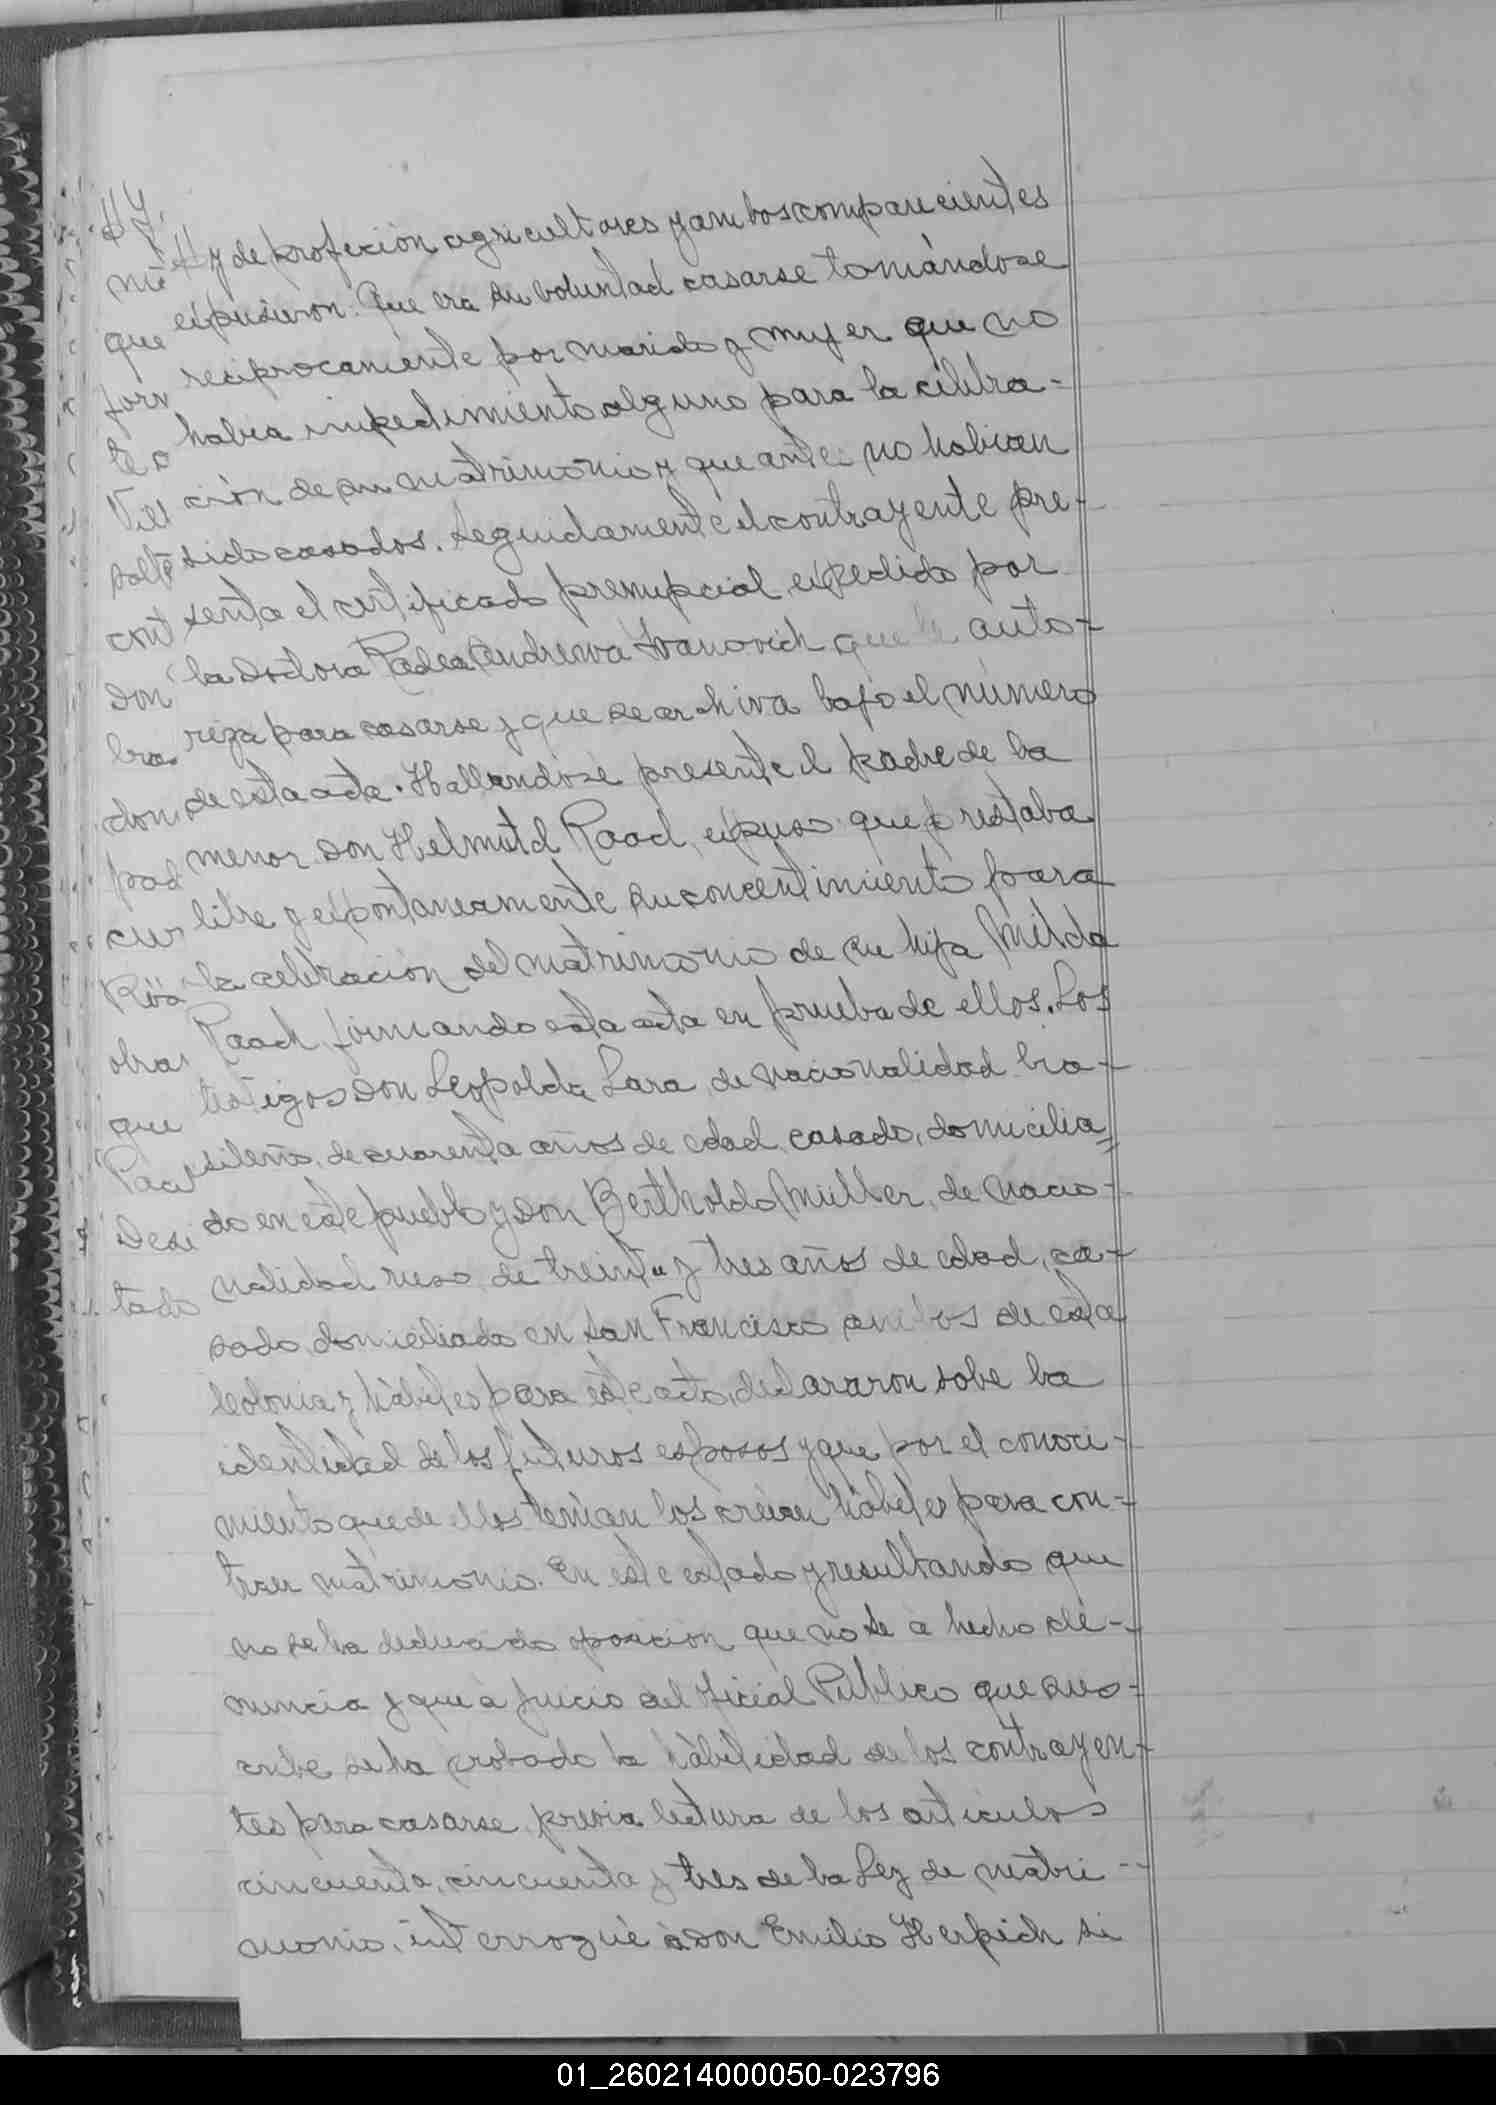 y de profecion agricultores y ambos comparecientes
expusieron: Que era su voluntad casarse tomándose
reciprocamente por marido y mujer que no
habia impedimento alguno para la celibra-
ción de su matrimonio y que antes no habian
sido casados. Seguidamente el contrayente pre-
senta el certificado prenupcial, expedido por
la Doctora Radea Andrewa Ivanovich que le auto-
riza para casarse y que se archiva bajo el número
de esta acta. Hallandose presente el padre de la
menor Don Helmutd Raach, expuso que prestaba
libre y expontaneamente su concentimiento para
la celebración del matrimonio de su hija Milda
Raach, firmando esta acta en prueba de ellos. Los
testigos Don Leopoldo Lara, de nacionalidad bra-
sileño, de cuarenta años de edad, casado, domicilia=
do en este pueblo y Don Bertholdo Müller, de nacio-
nalidad ruso, de treinta y tres años de edad, ca-
sado, domiciliado en San Francisco ambos de esta
Colonia y hábiles para este acto, declararon sobe la
identidad de los futuros esposos y que por el conoci-
miento que de ellos tenian los creian hábiles para con-
traer matrimonio. En este estado y resultando que
no se ha deducido oposición que no se a hecho de-
nuncia y que a juicio del Oficial Público que sus-
cribe se ha probado la hábilidad de los contrayen-
tes para casarse, previa lectura de los articulos
cincuenta, cincuenta y tres de la Ley de matri-
monio, interrogué à Don Emilio Herpich si
01_260214000050-023796